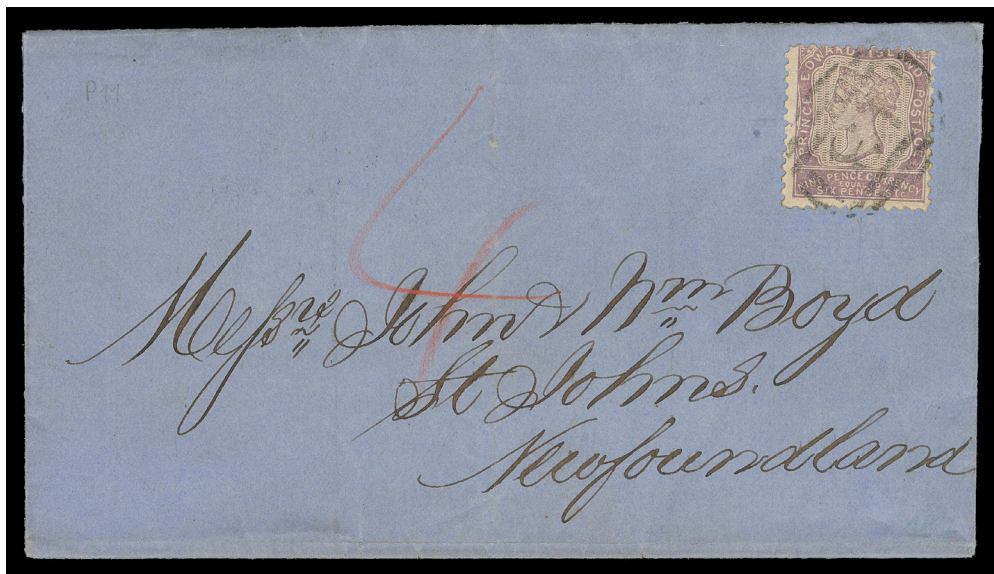 P11
PRINCE EDWARD ISLAND POSTAGE
NINE PENCE CURRENCY
EQUAL
SIX PENCE STG
4
Messrs John & Wm Boyd
St Johns.
Newfoundland